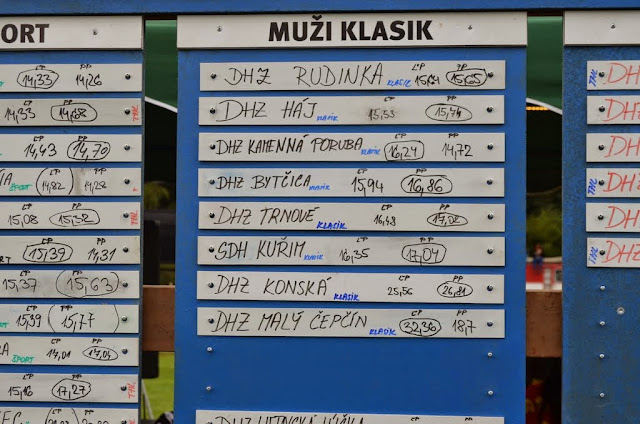 ORT
14,33 14,26
14,33 14,68
14,43 14,70
ŠPORT 14,82 14,28
15,08 15,32
15,39 14,31
15,37 15,63
15,39 15,77
ŠPORT 14,01 17,04
15,16 17,27
MUŽI KLASIK
DHZ RUDINKA KLASIK ĽP PP 15,65
DHZ HÁJ KLASIK ĽP PP 15,53 15,74
DHZ KAMENNÁ PORUBA KLASIK ĽP PP 16,24 14,72
DHZ BYTČICA KLASIK ĽP PP 15,94 16,86
DHZ TRNOVÉ KLASIK ĽP PP 16,48 17,02
SDH KUŘIM KLASIK ĽP PP 16,35 17,04
DHZ KONSKÁ KLASIK ĽP PP 25,56 26,81
DHZ MALÝ ČEPČÍN KLASIK ĽP PP 32,36 18,7
DHZ
DHZ
DHZ
DHZ
DHZ
DHZ